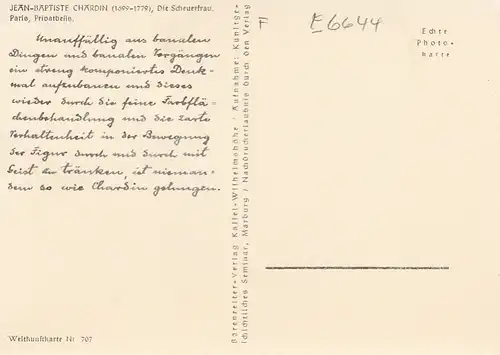 JEAN-BAPTISTE CHARDIN (1699-1779), Die Scheuerfrau.
Paris, Privatbesitz.
Unauffällig aus banalen
Dingen und banalen Vorgängen
ein streng komponiertes Denk-
mal aufzubauen und dieses
wieder durch die feine Farbflä-
chenbehandlung und die zarte
Verhaltenheit in der Bewegung
der Figur durch und durch mit
Geist zu tränken, ist nieman-
dem so wie Chardin gelungen.
Weltkunstkarte Nr. 707
Bärenreiter-Verlag Kassel-Wilhelmshöhe · Aufnahme: Kunstge-
schichtliches Seminar, Marburg / Nachdruckerlaubnis durch den Verlag
F
E6644
Echte
Photo-
karte